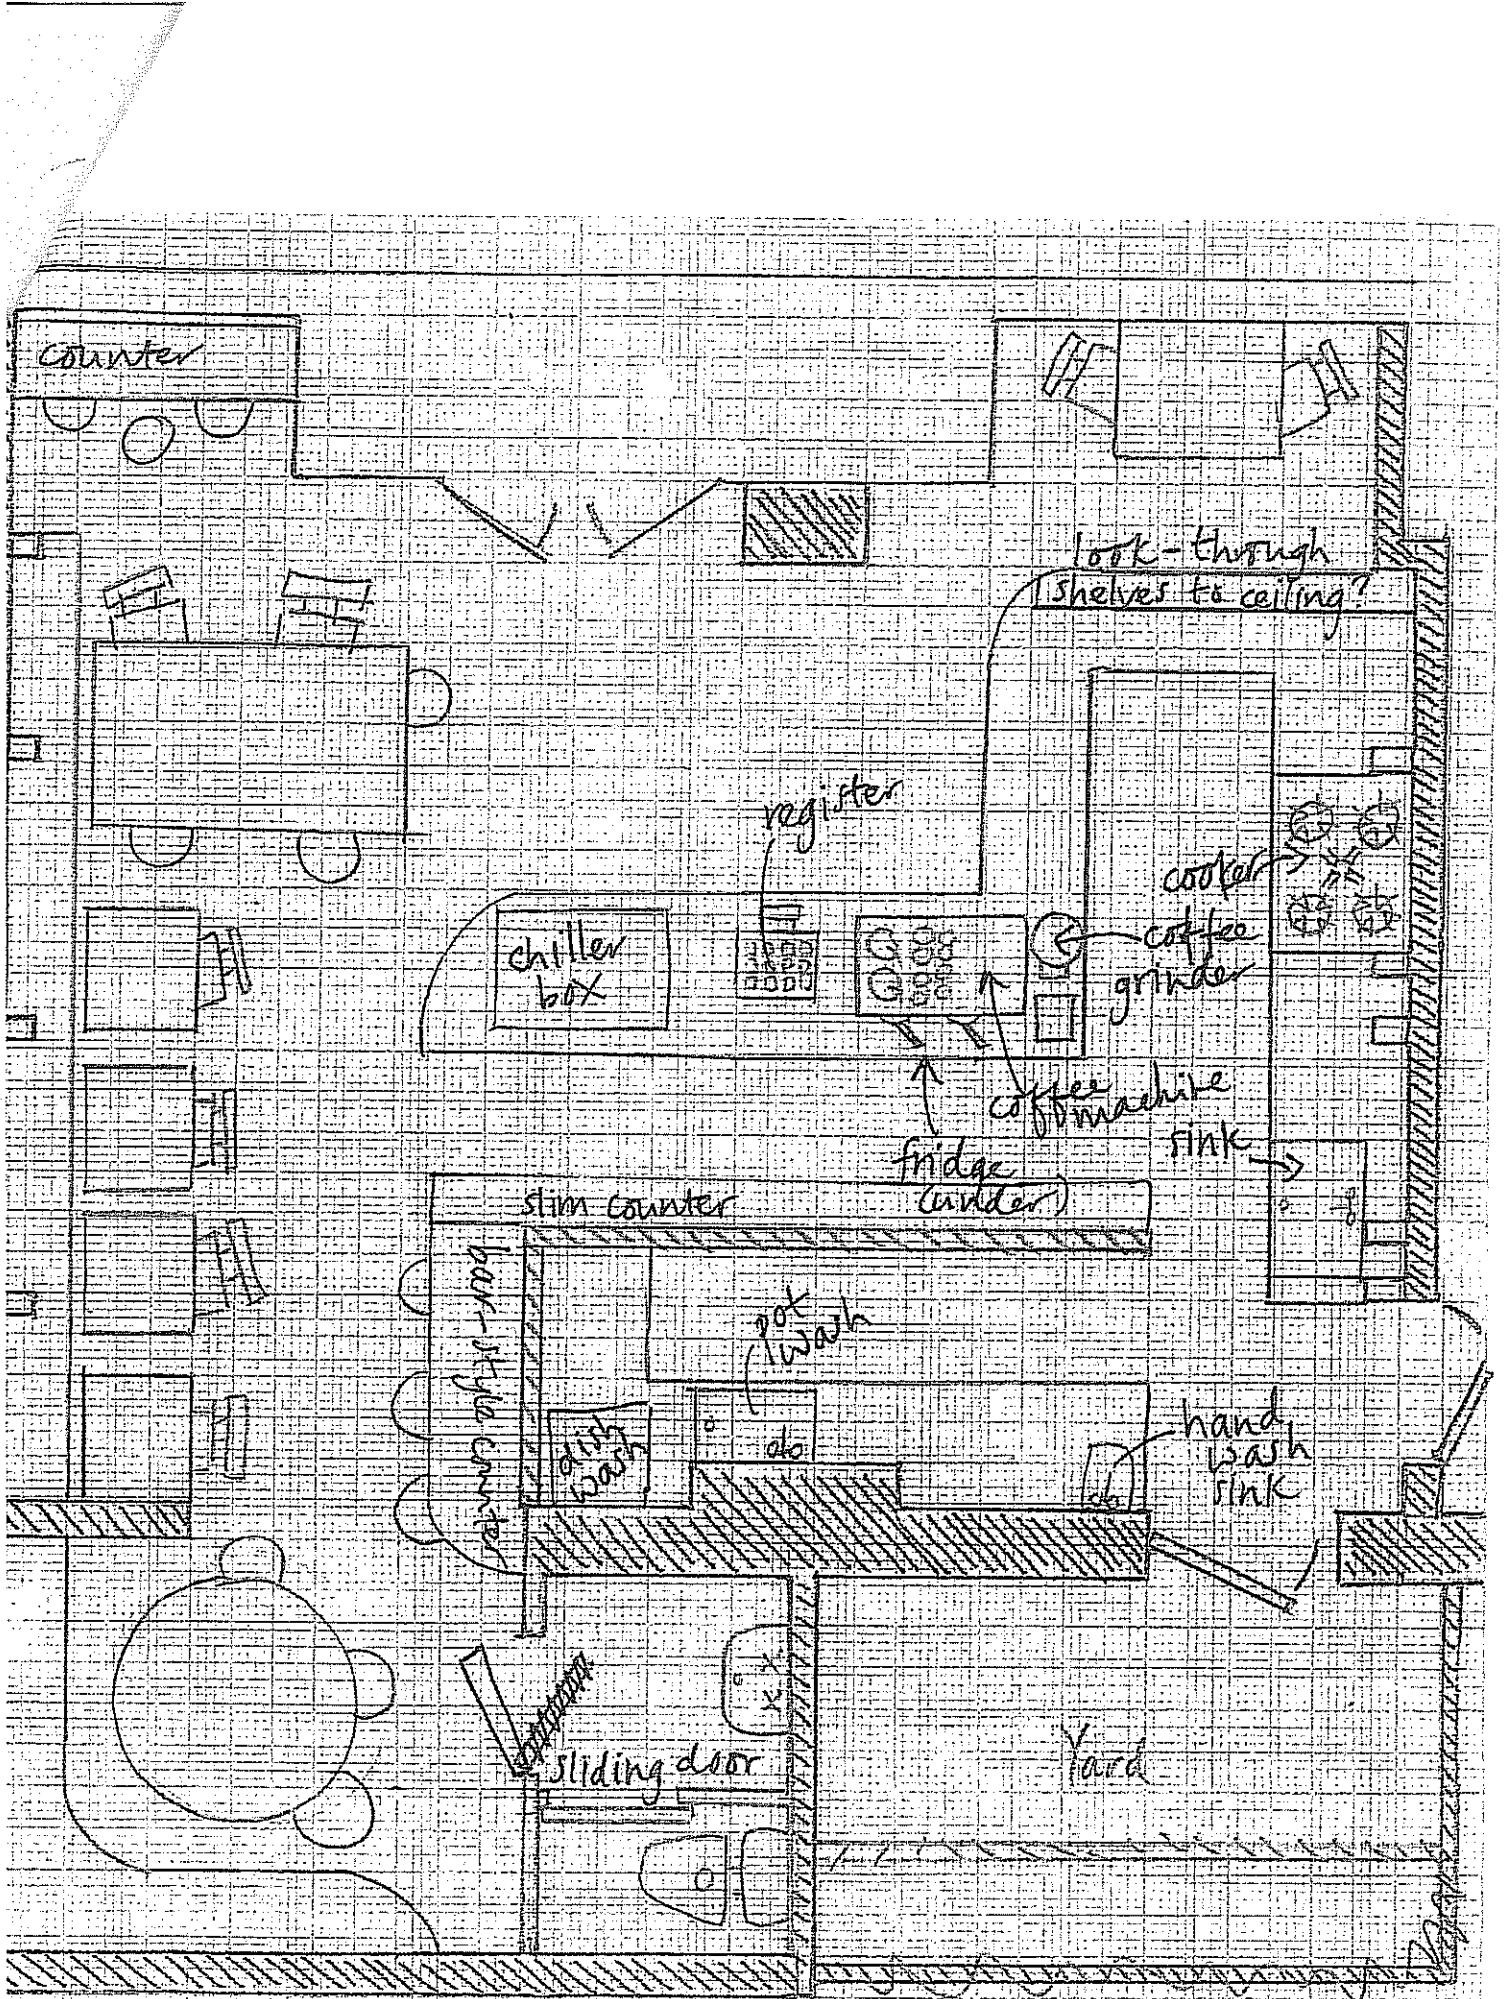 counter
look-through
shelves to ceiling?
register
cooker
coffee
grinder
chiller
box
coffee
machine
sink
fridge
(under)
slim counter
bar-style counter
pot
wash
dish
wash
hand
wash
sink
sliding door
Yard